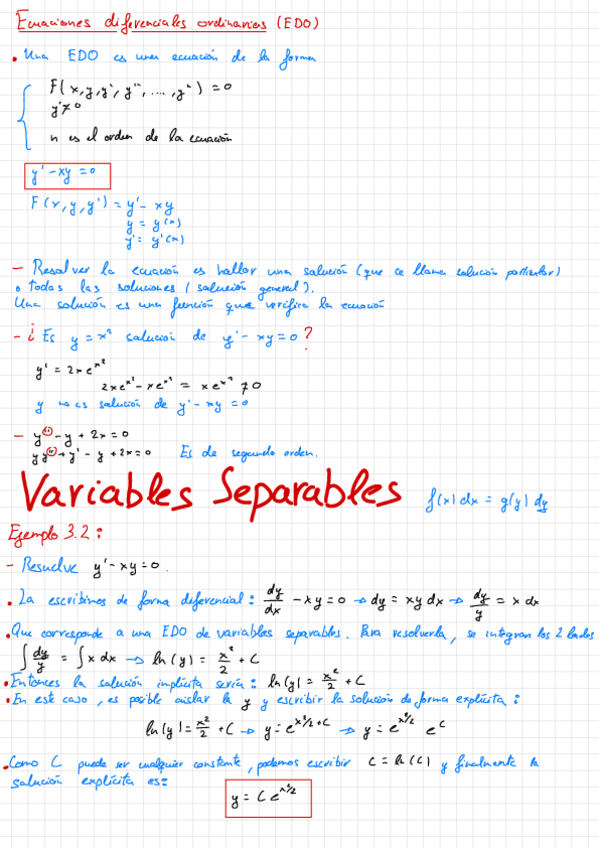 Ecuaciones diferenciales ordinarias (EDO)
• Una EDO es una ecuación de la forma
F(x,y,y',y'',...,yⁿ) = 0
y'≠0
n es el orden de la ecuación
y' - xy = 0
F(x,y,y') = y' - xy
y = y(x)
y' = y'(x)
- Resolver la ecuación es hallar una solución (que se llama solución particular)
o todas las soluciones (solución general).
Una solución es una función que verifica la ecuación
- ¿Es y = x² solución de y' - xy = 0?
y' = 2xe^x²
2xe^x² - xe^x² = xe^x² ≠ 0
y no es solución de y' - xy = 0
- y'' - y + 2x = 0
yy'' + y' - y + 2x = 0 Es de segundo orden.
Variables Separables f(x) dx = g(y) dy
Ejemplo 3.2:
- Resuelve y' - xy = 0.
• La escribimos de forma diferencial: dy/dx - xy = 0 → dy = xy dx → dy/y = x dx
• Que corresponde a una EDO de variables separables. Para resolverla, se integran los 2 lados
∫ dy/y = ∫ x dx → ln(y) = x²/2 + C
• Entonces la solución implícita sería: ln(y) = x²/2 + C
• En este caso, es posible aislar la y y escribir la solución de forma explícita:
ln(y) = x²/2 + C → y = e^(x²/2 + C) → y = e^(x²/2) e^C
• Como C puede ser cualquier constante, podemos escribir C = ln(C) y finalmente la
solución explícita es:
y = C e^(x²/2)